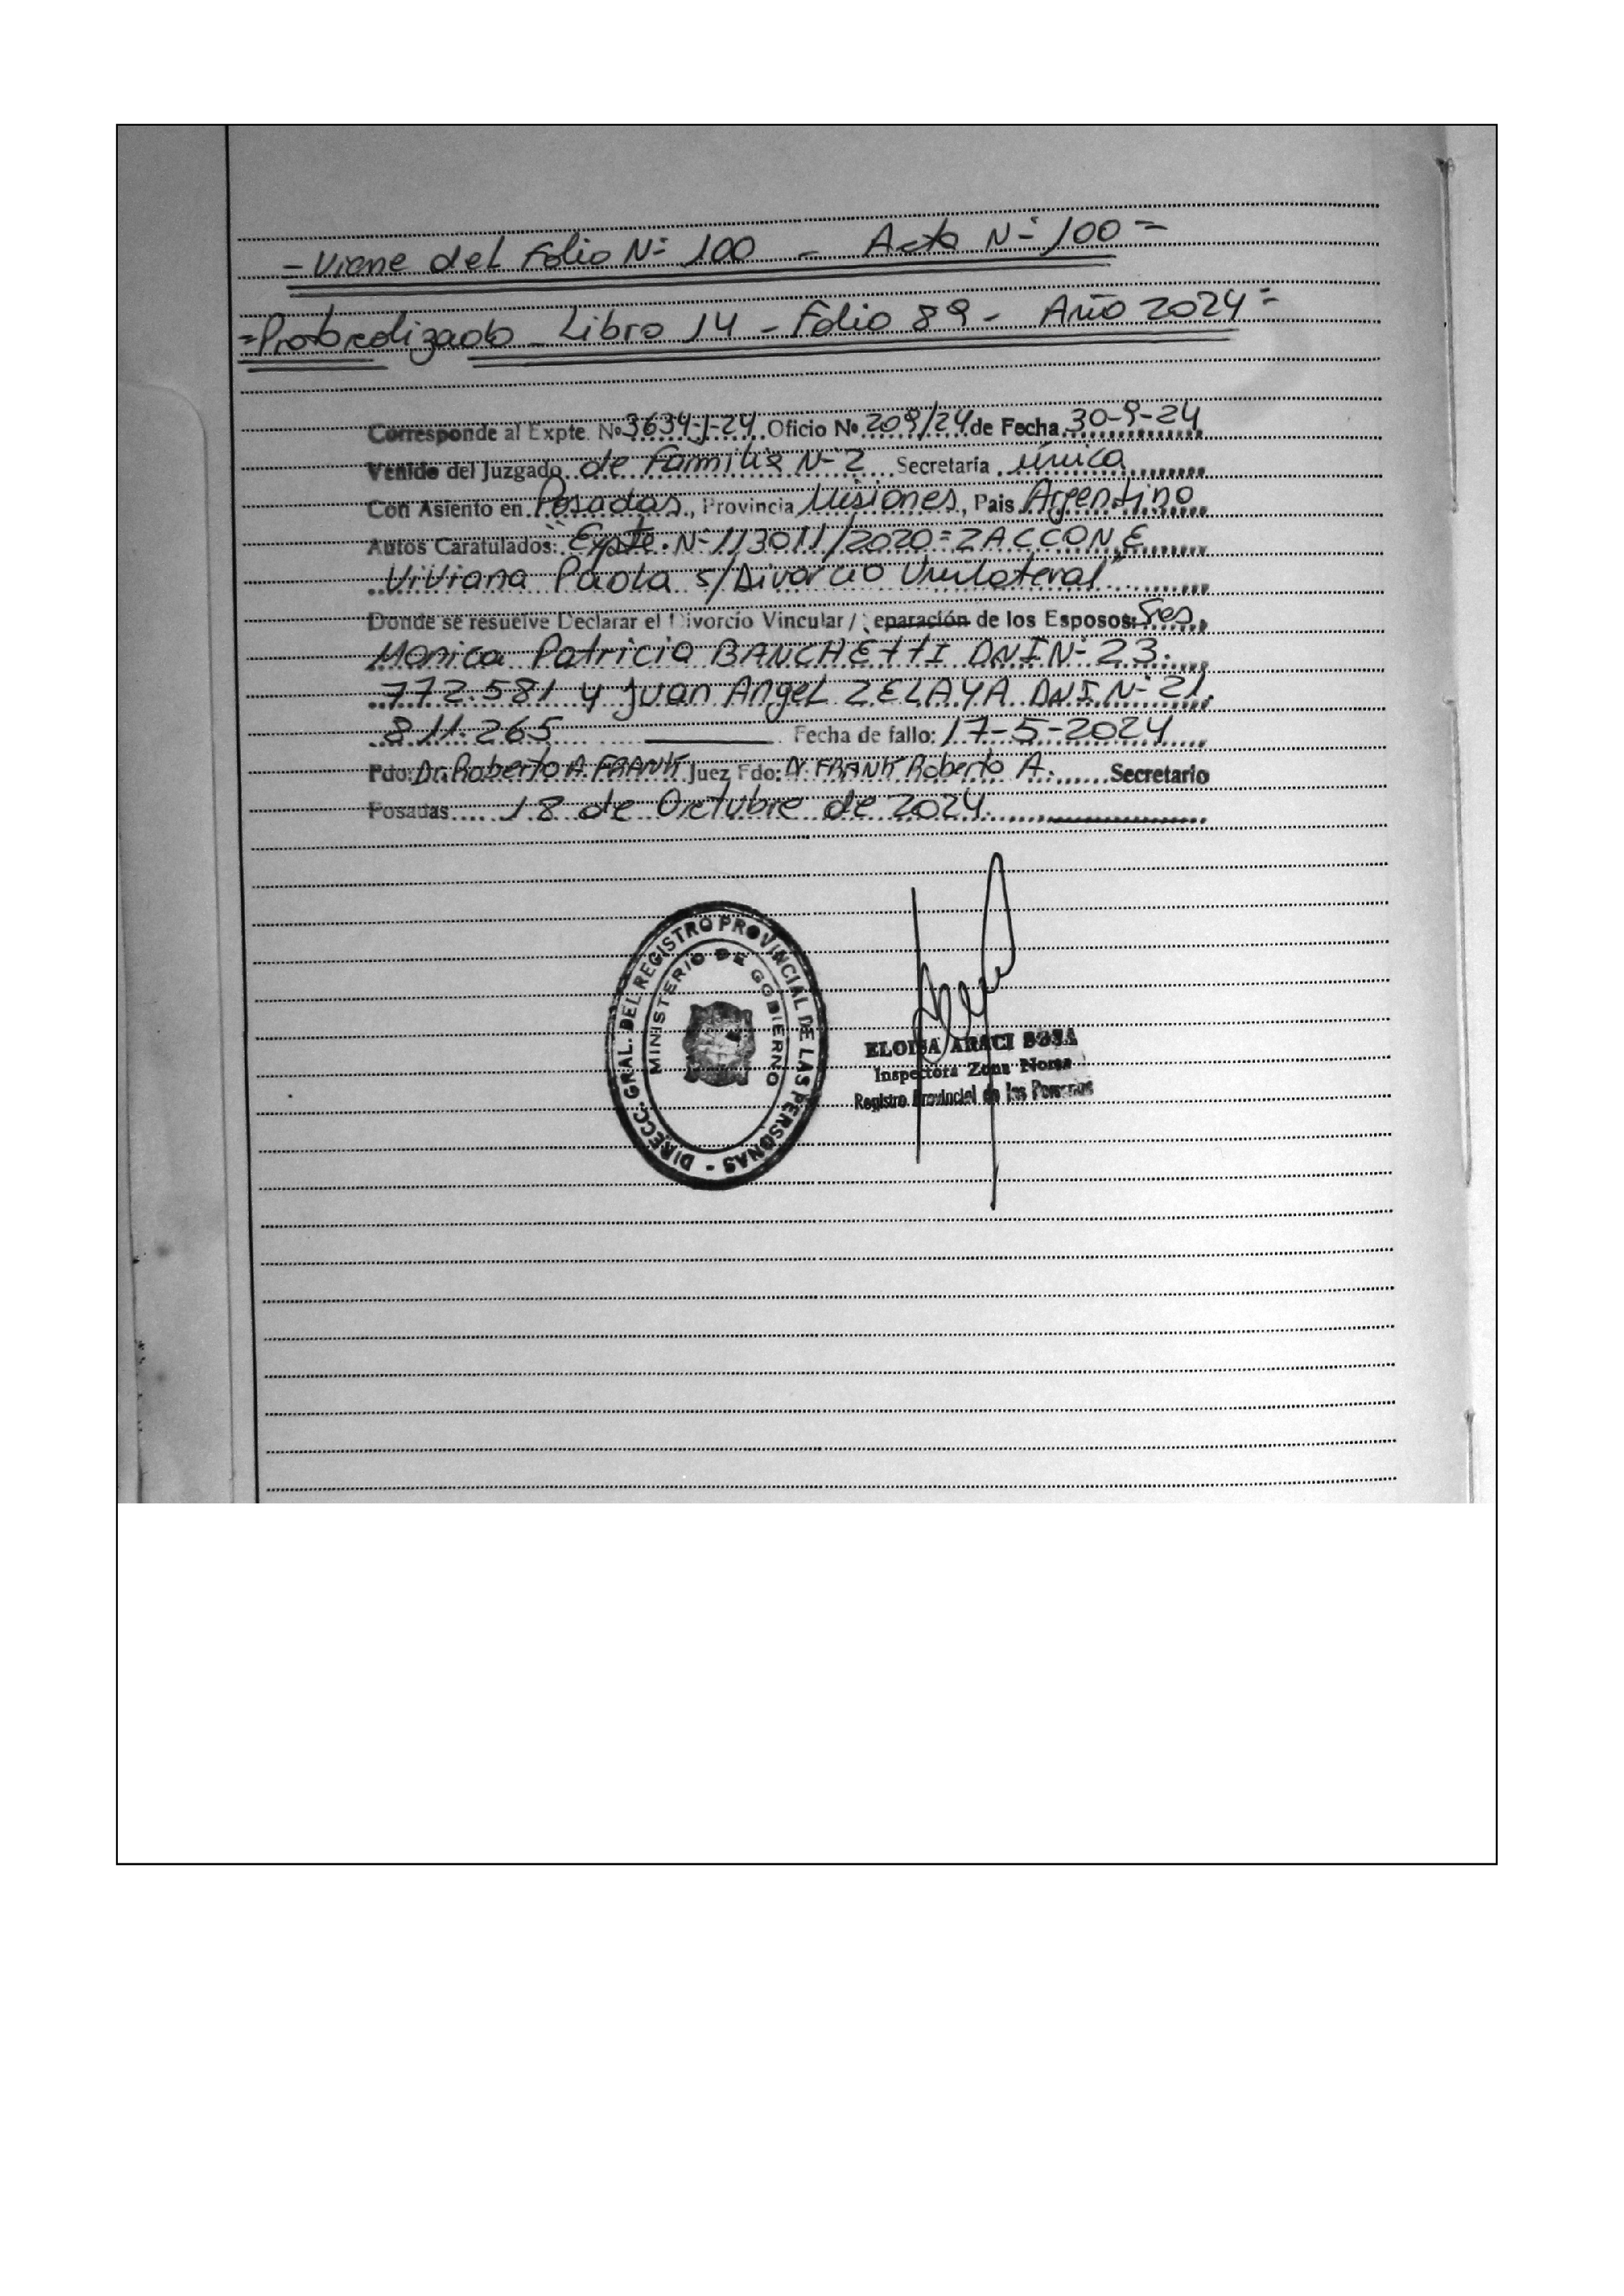 - Viene del Folio N° 100 - Acta N° 100 =
= Protocolizado - Libro 14 - Folio 89 - Año 2024 =
Corresponde al Expte. Nº 3634-J-24 Oficio Nº 209/24 de Fecha 30-9-24
Venido del Juzgado de Familia N° 2 Secretaría única
Con Asiento en Posadas, Provincia Misiones, Pais Argentino
Autos Caratulados: "Expte. N° 113011/2020 = ZACCONE
Viviana Paola s/Divorcio Unilateral"
Donde se resuelve Declarar el Divorcio Vincular / Separación de los Esposos: Sres
Monica Patricia BANCHETTI DNI N° 23.
772.581 y Juan Angel ZELAYA DNI N° 21.
811.265 Fecha de fallo: 17-5-2024
Fdo: Dr. Roberto A. FRANK Juez Fdo: Dr. FRANK Roberto A. Secretario
Posadas 18 de Octubre de 2024.
DIRECC. GRAL. DEL REGISTRO PROVINCIAL DE LAS PERSONAS -
MINISTERIO DE GOBIERNO
ELOISA ARACI SOSA
Inspectora Zona Norte
Registro Provincial de las Personas